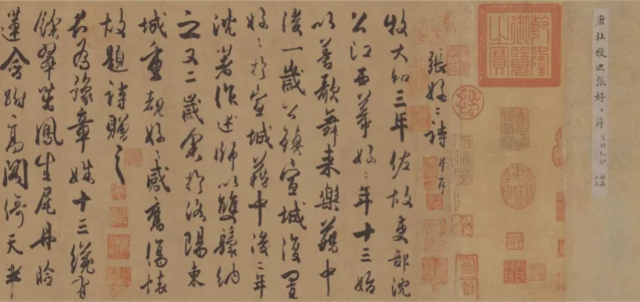 唐杜牧之張好好詩
張好好詩并序
牧大和三年佐故吏部沈
公江西幕好好年十三始
以善歌舞來樂籍中
後一歲公鎮宣城復置
好好於宣城籍中後二年
沈著作述師以雙鬟納
之又二歲余於洛陽東
城重覩好好感舊傷懷
故題詩贈之
君為豫章姝十三纔有
餘翠茁鳳生尾丹臉
蓮含跗高閣倚天半